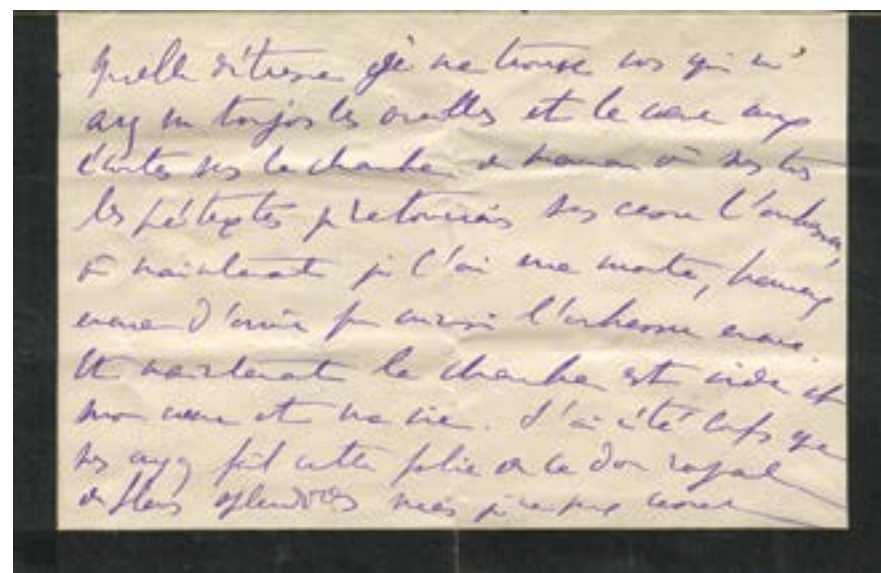 quelle détresse je me trouve vous qui m'
avez vu toujours les oreilles et le cœur aux
écoutes vers la chambre de Maman où sous tous
les prétextes je retournais sans cesse l'embrasser,
où maintenant je l'ai vue morte, heureux
encore d'avoir pu ainsi l'embrasser encore.
Et maintenant la chambre est vide et
mon cœur et ma vie. J'ai été que
vous ayez fait cette folie de ce don royal
de fleurs splendides mais je ne peux encore